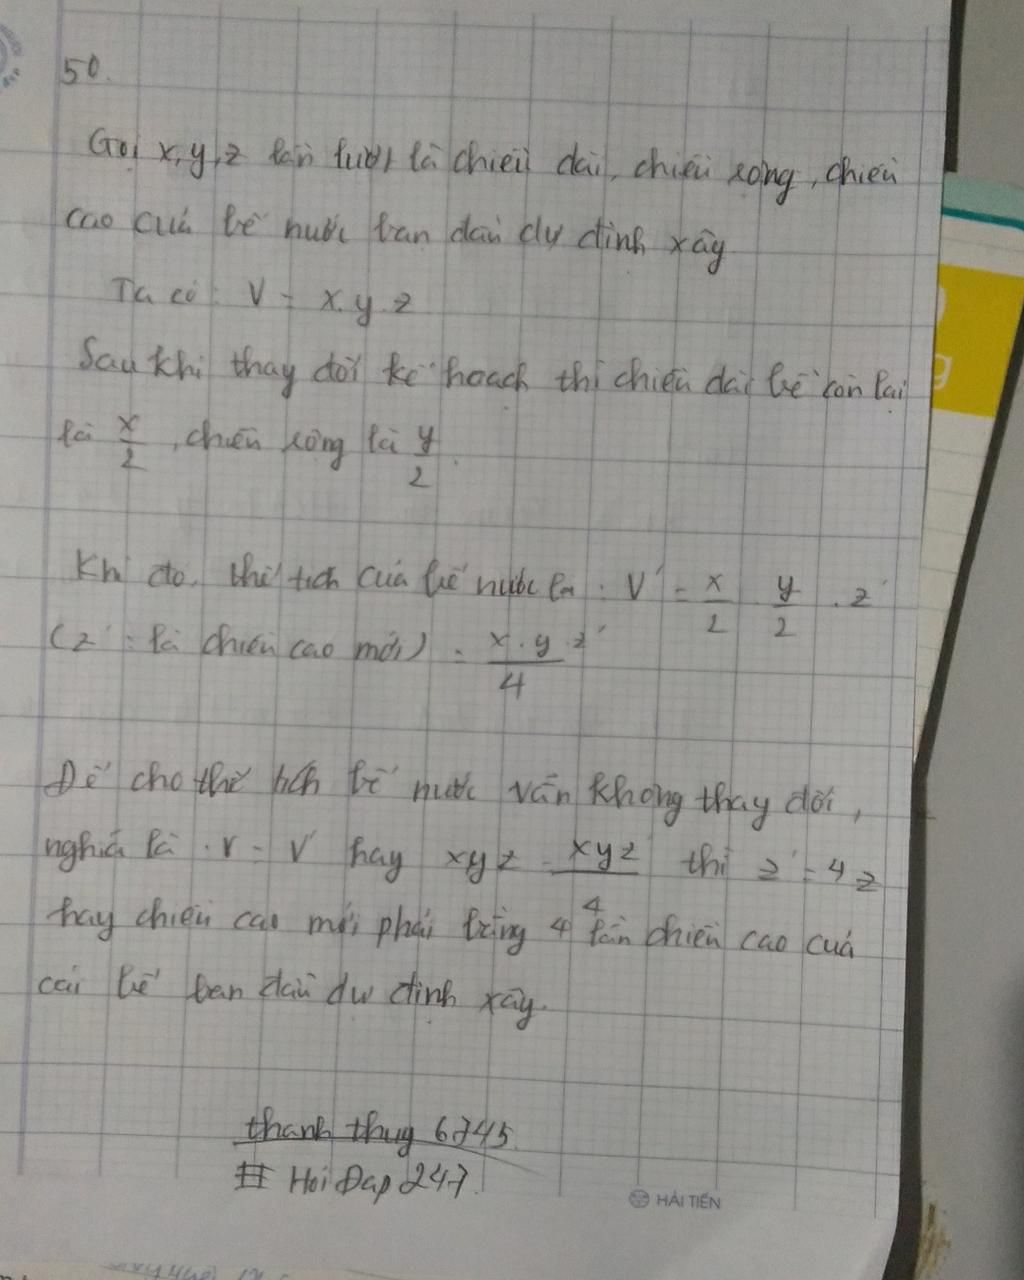 50.
Gọi x, y, z lần lượt là chiều dài, chiều rộng, chiều
cao của bể nước ban đầu dự định xây
Ta có: V = x.y.z
Sau khi thay đổi kế hoạch thì chiều dài bể còn lại
là x/2, chiều rộng là y/2.
Khi đó, thể tích của bể nước là : V' = x/2 . y/2 . z'
(z' : là chiều cao mới) = x.y.z'/4
Để cho thể tích bể nước vẫn không thay đổi,
nghĩa là V = V' hay xyz = xyz'/4 thì z' = 4z
hay chiều cao mới phải bằng 4 lần chiều cao của
cái bể ban đầu dự định xây.
thanh thuy 6745
# Hoi Đap 247.
HẢI TIẾN